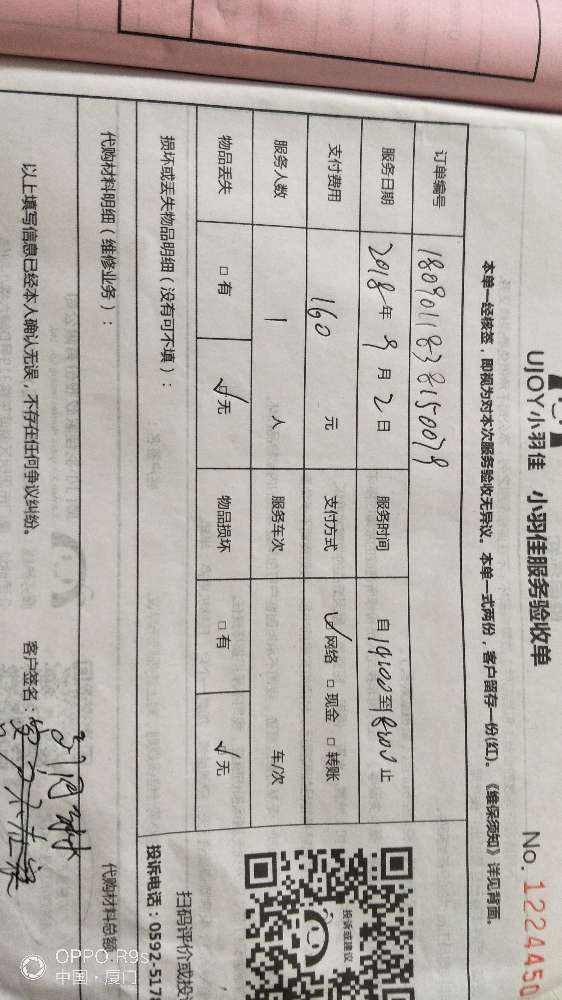 UJOY小羽佳 小羽佳服务验收单 No. 1224450
本单一经核签，即视为对本次服务验收无异议。本单一式两份，客户留存一份(红)。《维保须知》详见背面。
订单编号
服务日期 2018年9月2日 服务时间 自14:00至18:00止
支付费用 160 元 支付方式 √网络 □现金 □转账
服务人数 1 人 服务车次 车/次
物品丢失 □有 √无 物品损坏 □有 √无
损坏或丢失物品明细（没有可不填）：
扫码评价或投
投诉或建议
投诉电话：0592-5178
代购材料明细（维修业务）： 代购材料总额
以上填写信息已经本人确认无误，不存在任何争议纠纷。 客户签名：
OPPO R9s
中国·厦门